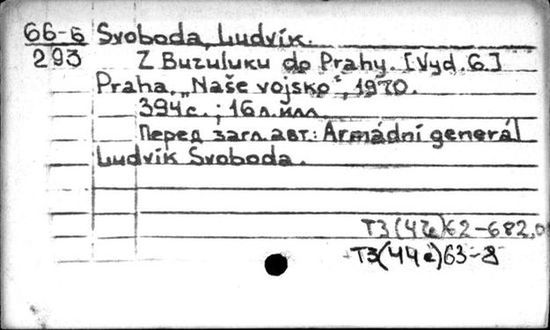 66-6 Svoboda, Ludvík.
293 Z Buzuluku do Prahy. [Vyd. 6.]
Praha, „Naše vojsko“, 1970.
394 с. ; 16 л. илл.
Перед загл. авт.: Armádní generál
Ludvík Svoboda.
Т3(4Че)62-682,0
Т3(4Че)63-8